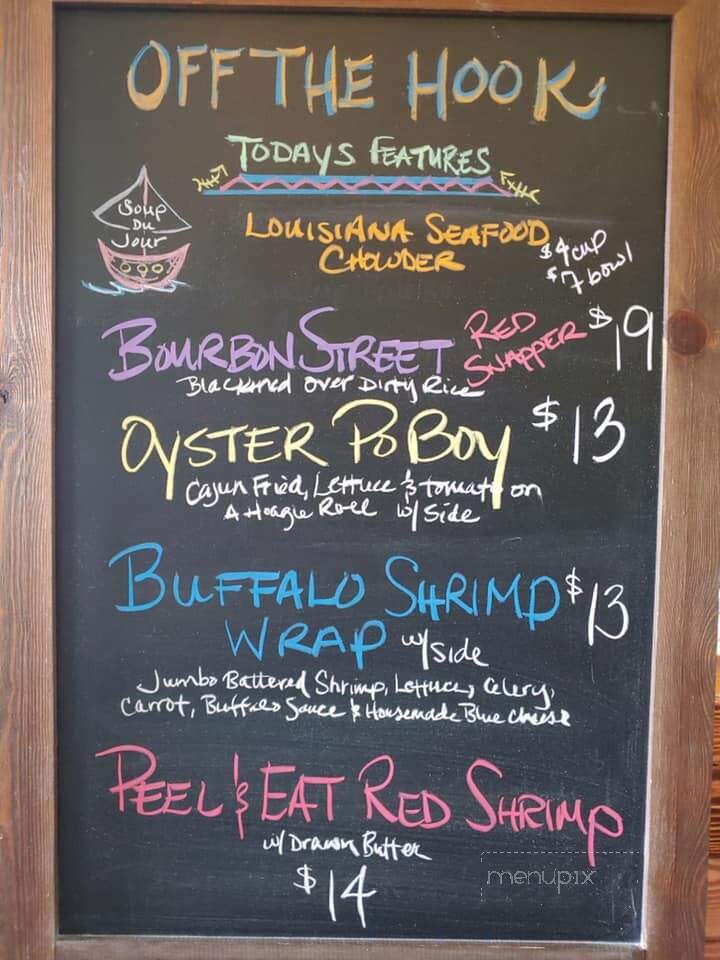 OFF THE HOOK
TODAYS FEATURES
Soup
Du
Jour
LOUISIANA SEAFOOD
CHOWDER
$4 cup
$7 bowl
BOURBON STREET RED
SNAPPER $19
Blackened over Dirty Rice
OYSTER PO BOY $13
Cajun Fried, Lettuce & tomato on
A Hoagie Roll w/ Side
BUFFALO SHRIMP $13
WRAP w/ Side
Jumbo Battered Shrimp, Lettuce, Celery,
Carrot, Buffalo Sauce & Housemade Blue Cheese
PEEL & EAT RED SHRIMP
w/ Drawn Butter
$14
menupix